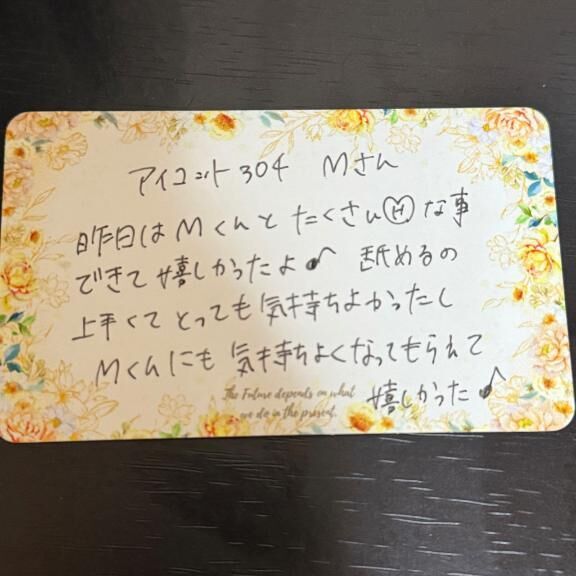 アイコット304 Mさん
昨日はMくんとたくさんⒽな事
できて嬉しかったよ♪ 舐めるの
上手くてとっても気持ちよかったし
Mくんにも気持ちよくなってもらえて
嬉しかった♪
The Future depends on what
we do in the present.